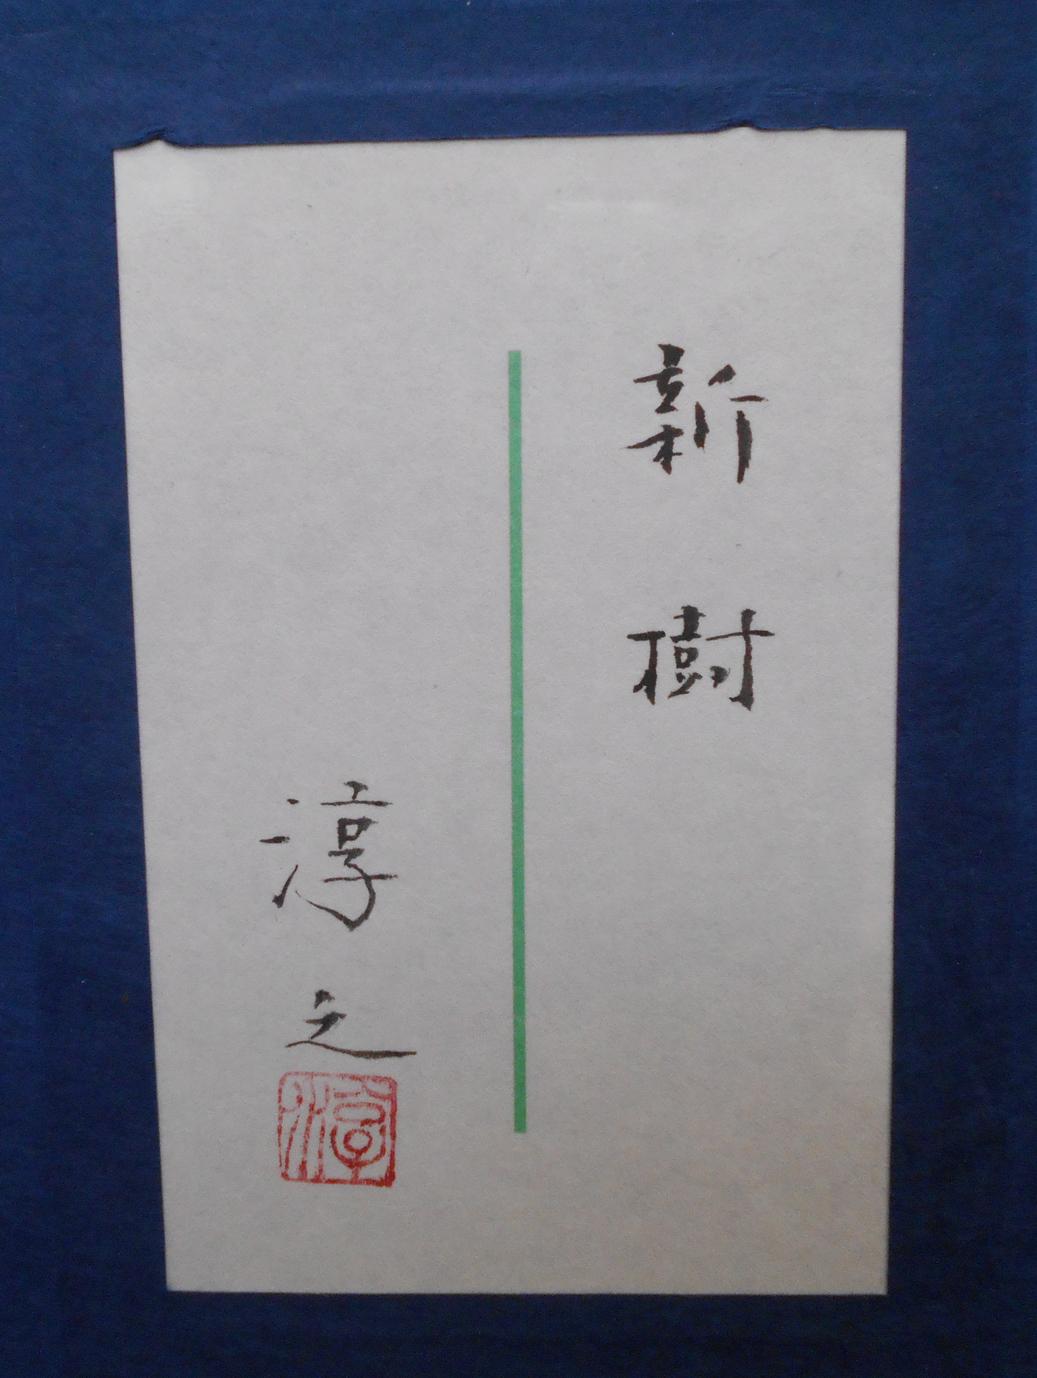 新樹
淳之
淳